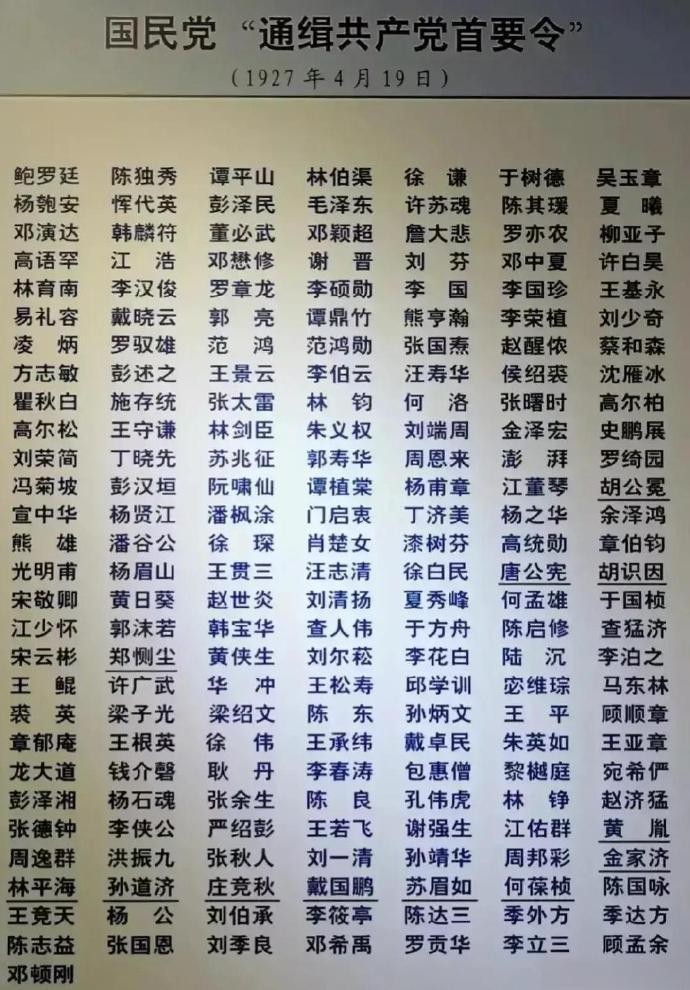 国民党“通缉共产党首要令”
(1927年4月19日)
鲍罗廷 陈独秀 谭平山 林伯渠 徐谦 于树德 吴玉章
杨匏安 恽代英 彭泽民 毛泽东 许苏魂 陈其瑗 夏曦
邓演达 韩麟符 董必武 邓颖超 詹大悲 罗亦农 柳亚子
高语罕 江浩 邓懋修 谢晋 刘芬 邓中夏 许白昊
林育南 李汉俊 罗章龙 李硕勋 李国 李国珍 王基永
易礼容 戴晓云 郭亮 谭鼎竹 熊亨瀚 李荣植 刘少奇
凌炳 罗驭雄 范鸿 范鸿勋 张国焘 赵醒侬 蔡和森
方志敏 彭述之 王景云 李伯云 汪寿华 侯绍裘 沈雁冰
瞿秋白 施存统 张太雷 林钧 何洛 张曙时 高尔柏
高尔松 王守谦 林剑臣 朱义权 刘端周 金泽宏 史鹏展
刘荣简 丁晓先 苏兆征 郭寿华 周恩来 澎湃 罗绮园
冯菊坡 彭汉垣 阮啸仙 谭植棠 杨甫章 江董琴 胡公冕
宣中华 杨贤江 潘枫涂 门启衷 丁济美 杨之华 余泽鸿
熊雄 潘谷公 徐琛 肖楚女 漆树芬 高统勋 章伯钧
光明甫 杨眉山 王贯三 汪志清 徐白民 唐公宪 胡识因
宋敬卿 黄日葵 赵世炎 刘清扬 夏秀峰 何孟雄 于国桢
江少怀 郭沫若 韩宝华 查人伟 于方舟 陈启修 查猛济
宋云彬 郑恻尘 黄侠生 刘尔菘 李花白 陆沉 李泊之
王鲲 许广武 华冲 王松寿 邱学训 宓维琮 马东林
裘英 梁子光 梁绍文 陈东 孙炳文 王平 顾顺章
章郁庵 王根英 徐伟 王承纬 戴卓民 朱英如 王亚章
龙大道 钱介磬 耿丹 李春涛 包惠僧 黎樾庭 宛希俨
彭泽湘 杨石魂 张余生 陈良 孔伟虎 林铮 赵济猛
张德钟 李侠公 严绍彭 王若飞 谢强生 江佑群 黄胤
周逸群 洪振九 张秋人 刘一清 孙靖华 周邦彩 金家济
林平海 孙道济 庄竞秋 戴国鹏 苏眉如 何葆桢 陈国咏
王竞天 杨公 刘伯承 李筱亭 陈达三 季外方 季达方
陈志益 张国恩 刘季良 邓希禹 罗贡华 李立三 顾孟余
邓顿刚